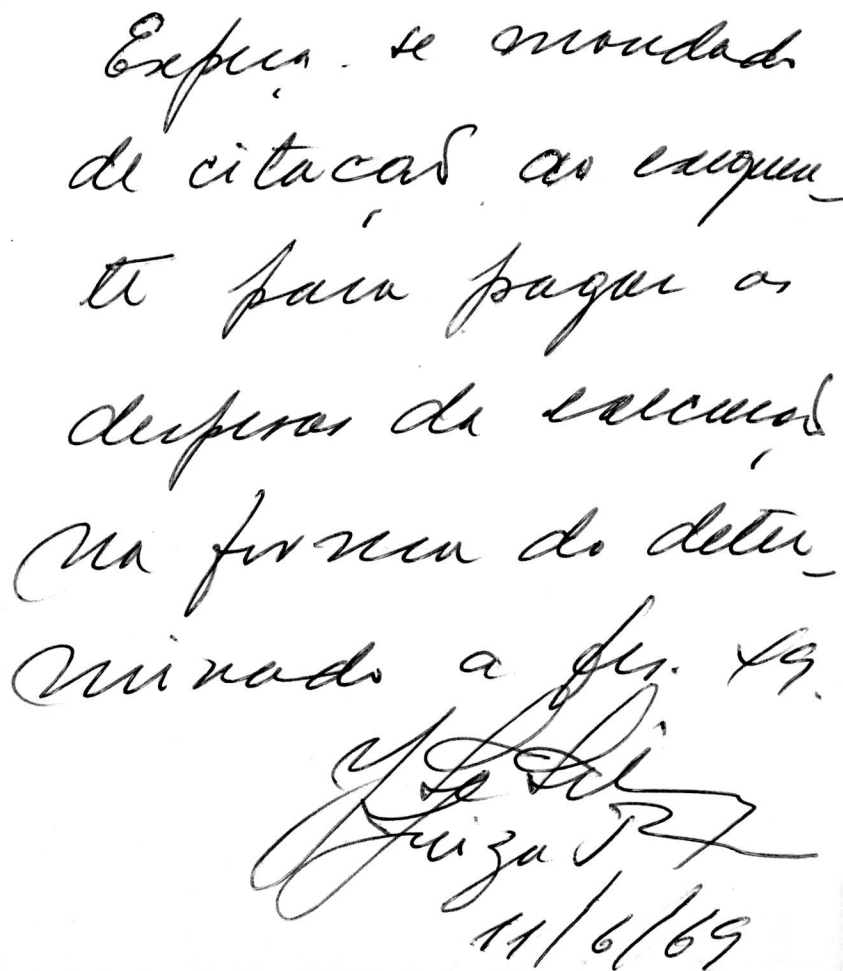 Expeça-se mandado
de citação ao exequen-
te para pagar as
despesas da execução
na forma do deter-
minado a fls. 
Juiza
11/6/69